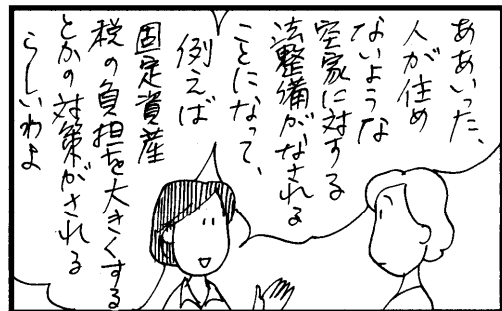 ああいった、
人が住め
ないような
空家に対する
法整備がなされる
ことになって、
例えば
固定資産
税の負担を大きくする
とかの対策がされる
らしいわよ